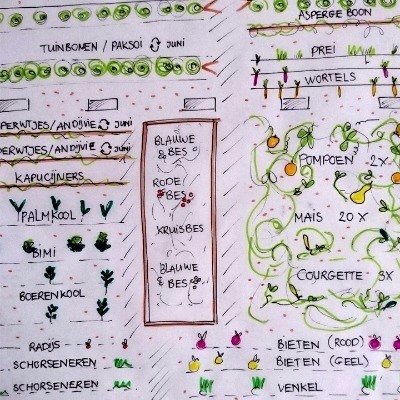 ASPERGE BOON
TUINBOMEN / PAKSOI JUNI
PREI
WORTELS
PERWTJES/ANDIJVIE JUNI
PERWTJES/ANDIJVIE JUNI
KAPUCIJNERS
PALMKOOL
BIMI
BOERENKOOL
RADIJS
SCHORSENEREN
SCHORSENEREN
BLAUWE
& BES
RODE
BES
KRUISBES
BLAUWE
& BES
POMPOEN 2x
MAIS 20 X
COURGETTE 3x
BIETEN (ROOD)
BIETEN (GEEL)
VENKEL